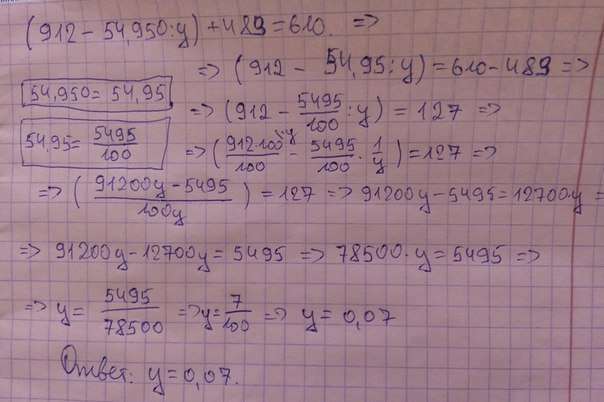 (912 - 54,950:y) + 483 = 610. =>
=> (912 - 54,95:y) = 610 - 483 =>
54,950 = 54,95 => (912 - 5495/100 : y) = 127 =>
54,95 = 5495/100 => (912·100·y/100 - 5495/100 · 1/y) = 127 =>
=> (91200y - 5495/100y) = 127 => 91200y - 5495 = 12700·y =
=> 91200y - 12700y = 5495 => 78500·y = 5495 =>
=> y = 5495/78500 => y = 7/100 => y = 0,07
Ответ: y = 0,07.